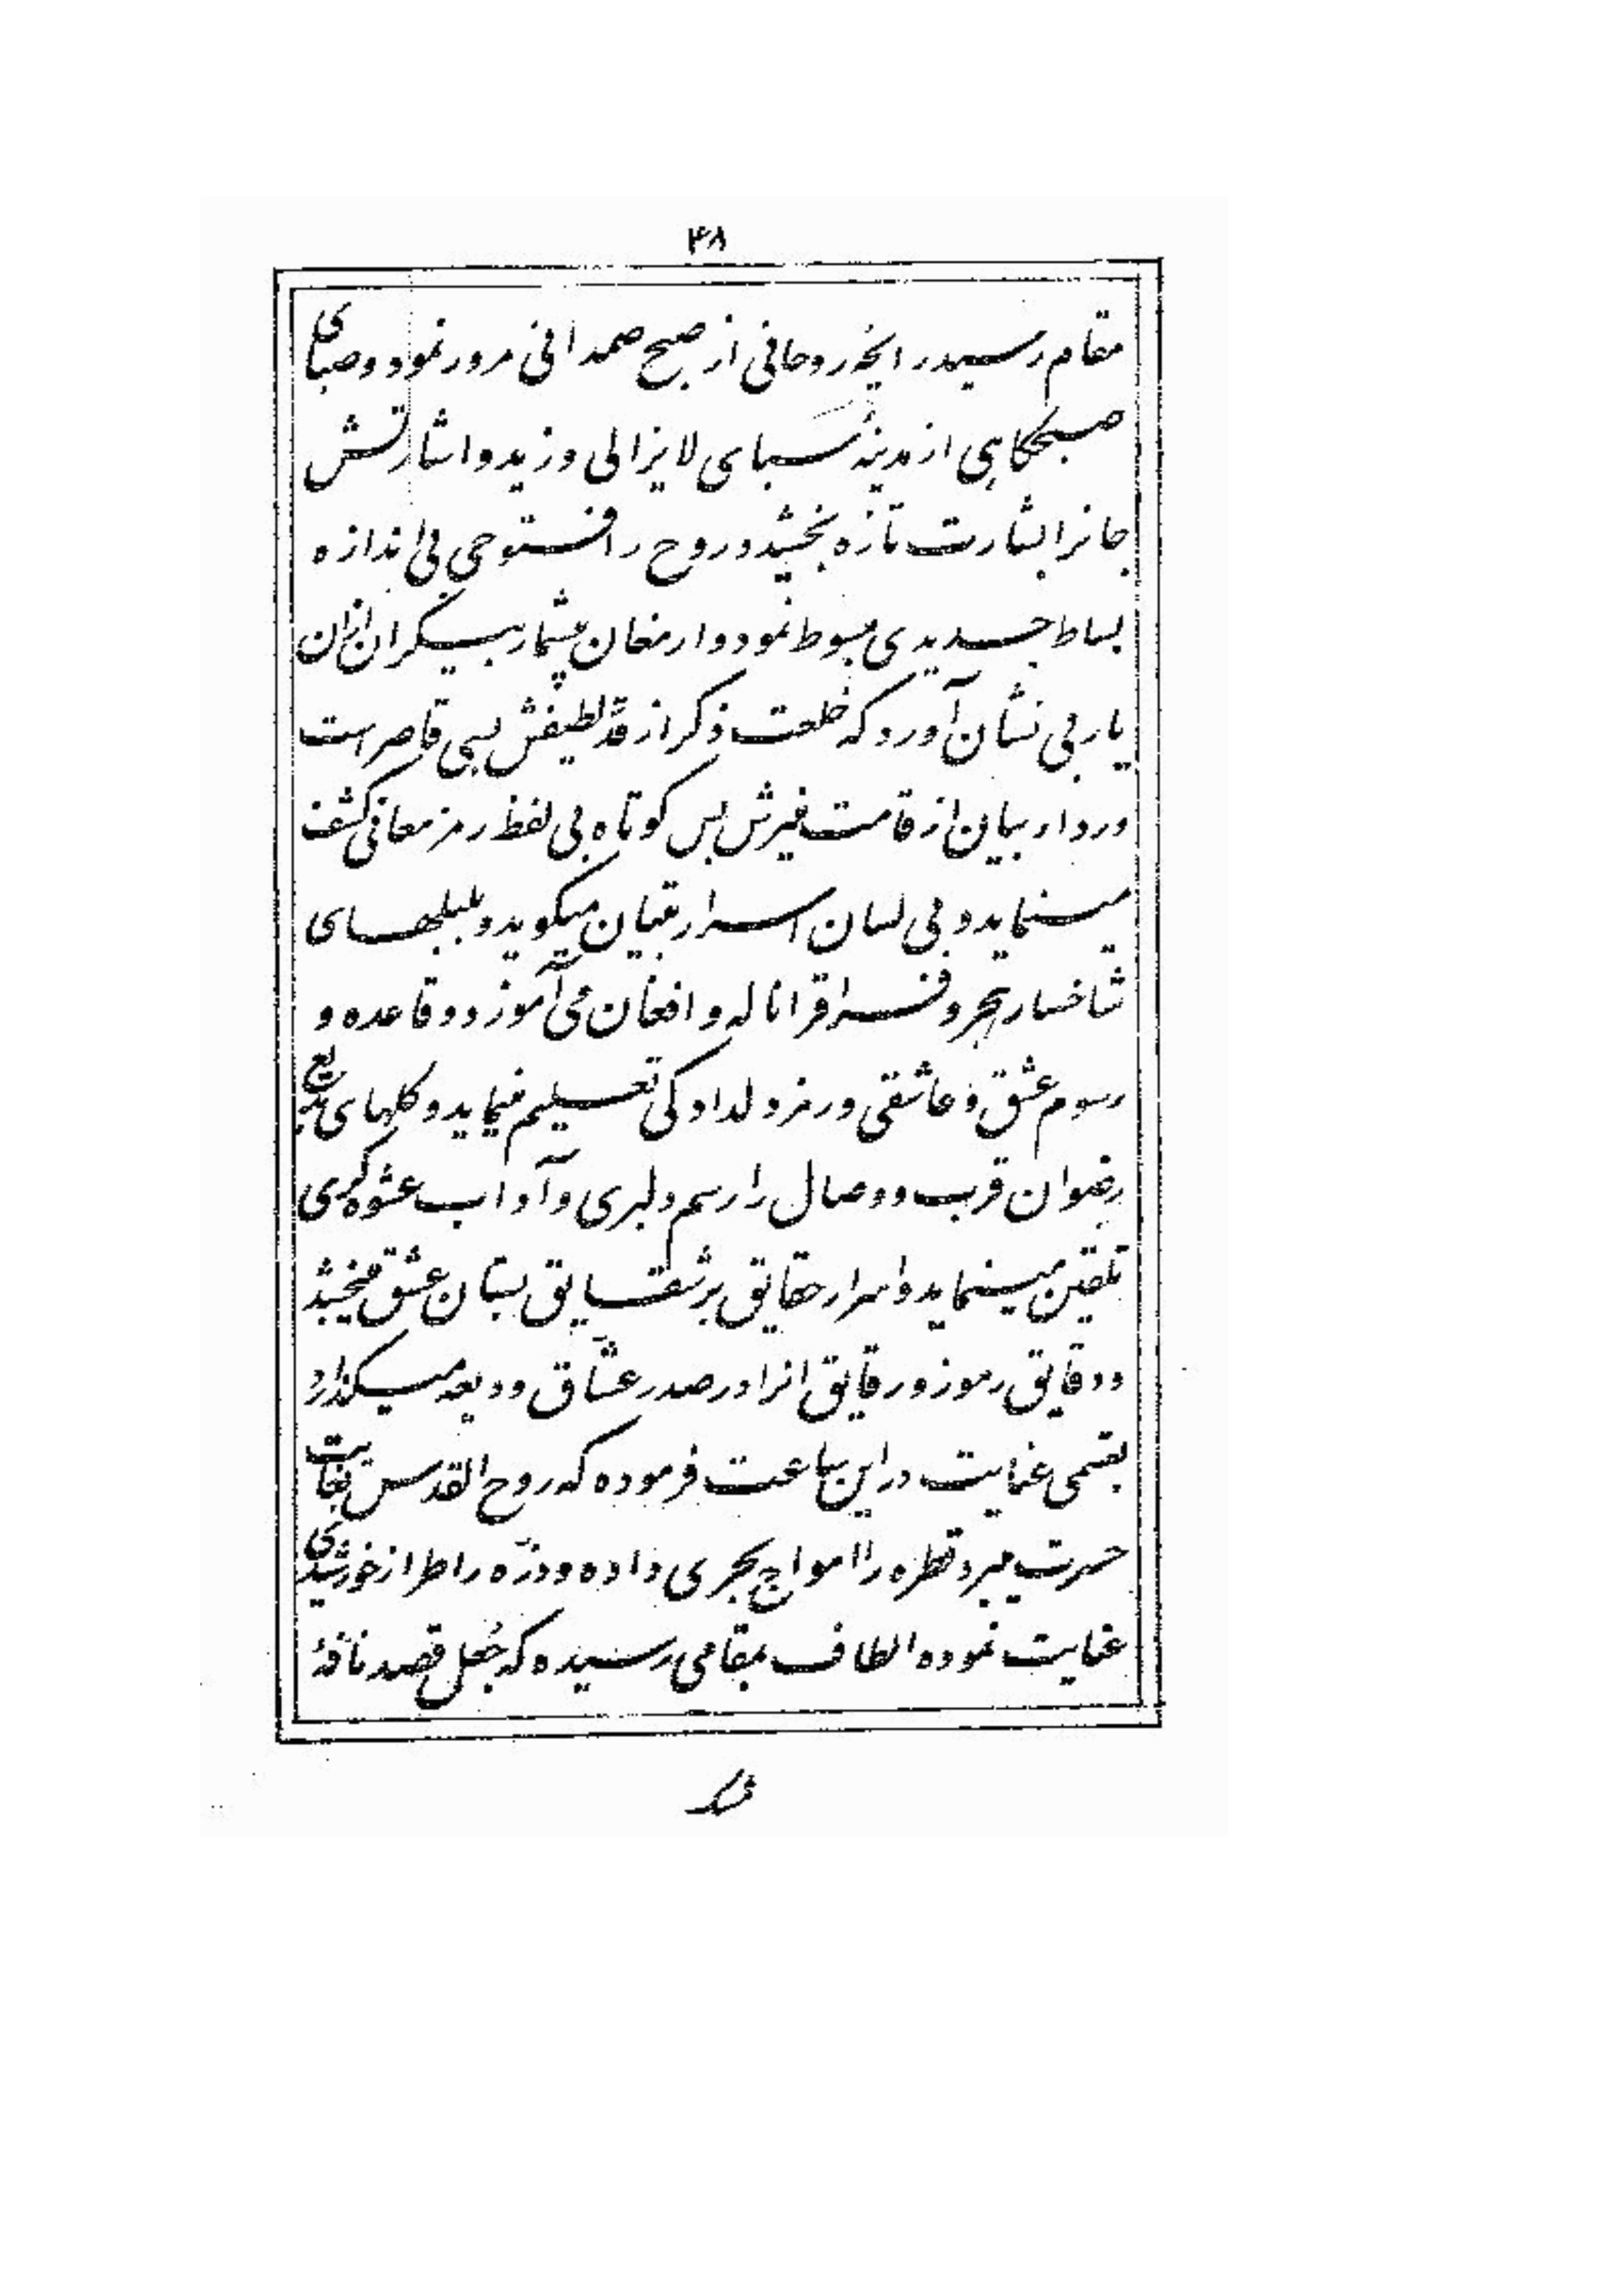 ۳۸
مقام رسید رایحه روحانی از صبح صمدانی مرور نمود و صبای
صبحگاهی از مدینه سبای لایزالی وزید و اشارتش
جانرا بشارت تازه بخشید و روح را فتوحی بی اندازه
بساط جدیدی مبسوط نمود و ارمغان بیشمار بیکران از ان
یار بی نشان آورد که خلعت ذکر از قدّ لطیفش بسی قاصر است
و رداء بیان از قامت منیرش بس کوتاه بی لفظ رمز معانی کشف
مینماید و بی لسان اسرار تبیان میگوید و بلبلهای
شاخسار هجر و فراقرا ناله و افغان می آموزد و قاعده و
رسوم عشق و عاشقی و رمز دلدادگی تعلیم مینماید و گلهای بدیع
رضوان قرب و وصال را رسم دلبری و آداب عشوه گری
تلقین مینماید و اسرار حقایق بر شقایق بستان عشق میبخشد
و دقایق رموز و رقایق انرا در صدر عشّاق ودیعه میگذارد
بقسمی عنایت در این ساعت فرموده که روح القدس بغایت
حسرت میبرد قطره را امواج بحری داده و ذرّه را طراز خورشیدی
عنایت نموده الطاف بمقامی رسیده که جُعل قصد نافهٔ
مشک